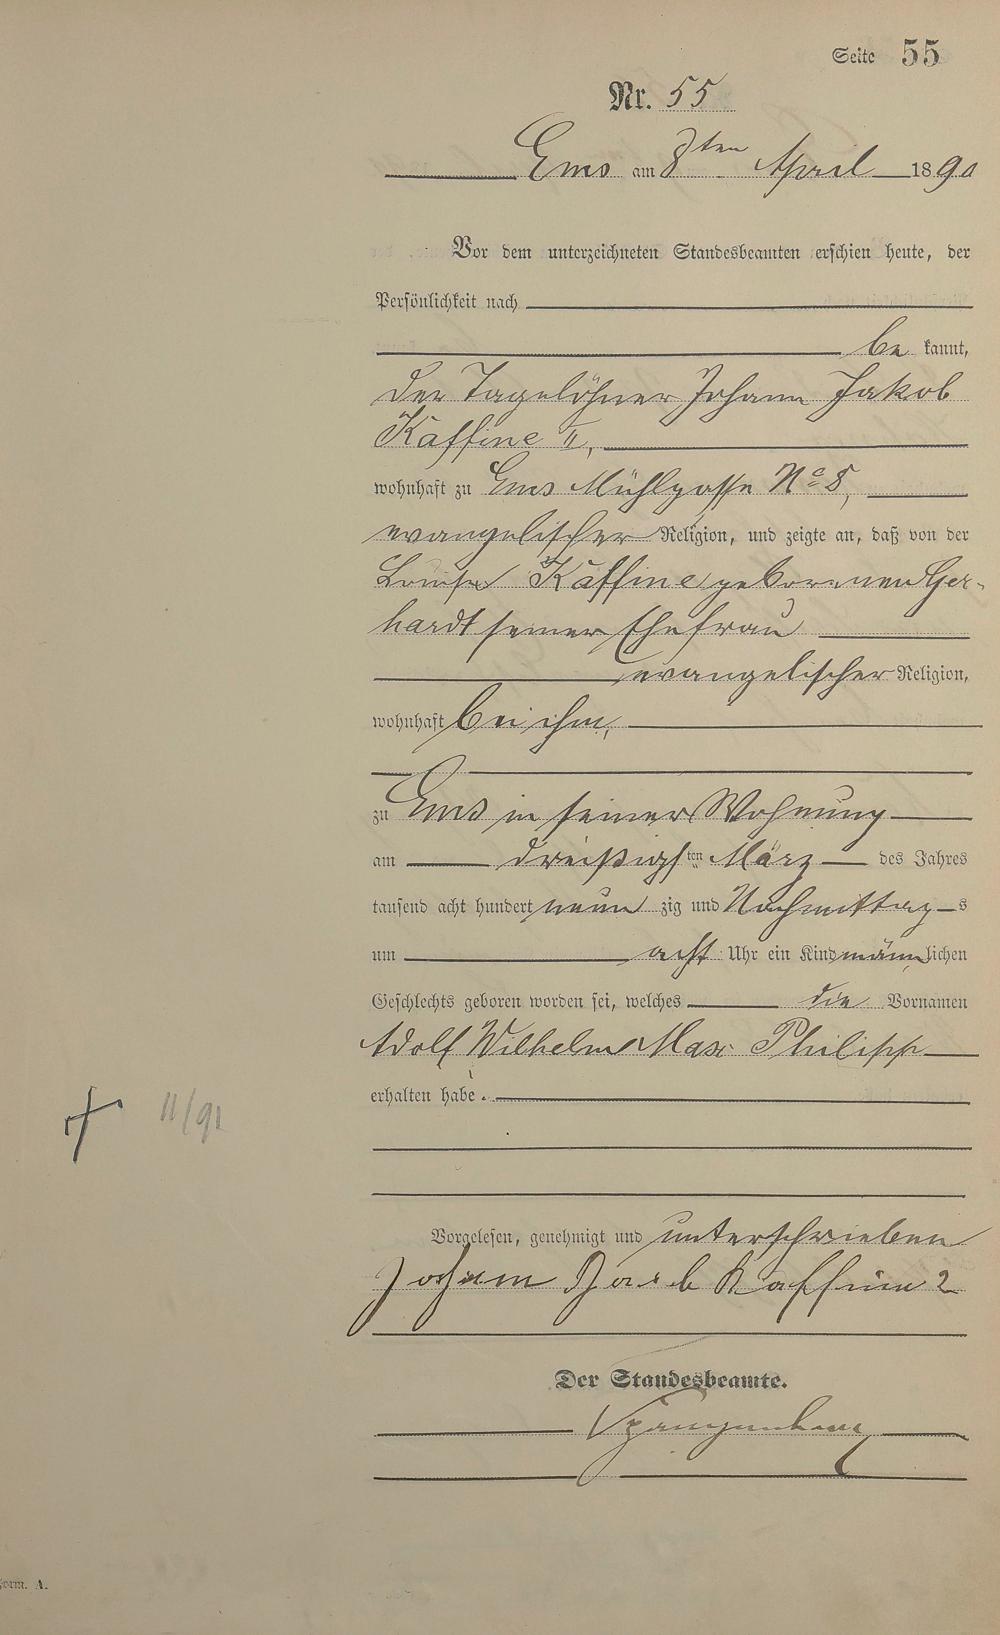 Seite 55
Nr. 55
Ems am 8ten April 1890
Vor dem unterzeichneten Standesbeamten erschien heute, der
Persönlichkeit nach
be kannt,
der Tagelöhner Johann Jakob
Kaffine II,
wohnhaft zu Ems Mühlgasse No 8,
evangelischer Religion, und zeigte an, daß von der
Louise Kaffine geborenen Ger-
hardt seiner Ehefrau
evangelischer Religion,
wohnhaft bei ihm,
zu Ems in seiner Wohnung
am dreißigsten März des Jahres
tausend acht hundert neun zig und Nachmittags
um acht Uhr ein Kind männlichen
Geschlechts geboren worden sei, welches die Vornamen
Adolf Wilhelm Max Philipp
erhalten habe.
† 11/91
Vorgelesen, genehmigt und unterschrieben
Johann Jacob Kaffine 2
Der Standesbeamte.
Form. A.